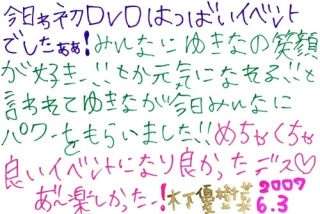 今日ゎ初DVDはつばいイベント
でしたぁぁ!みんなにゆきなの笑顔
が好き!!とか元気になれる!!と
言われてゆきなが今日みんなに
パワーをもらいました!!めちゃくちゃ
良いイベントになり良かったデス♡
あ~楽しかったー!木下優樹菜 2007
6.3